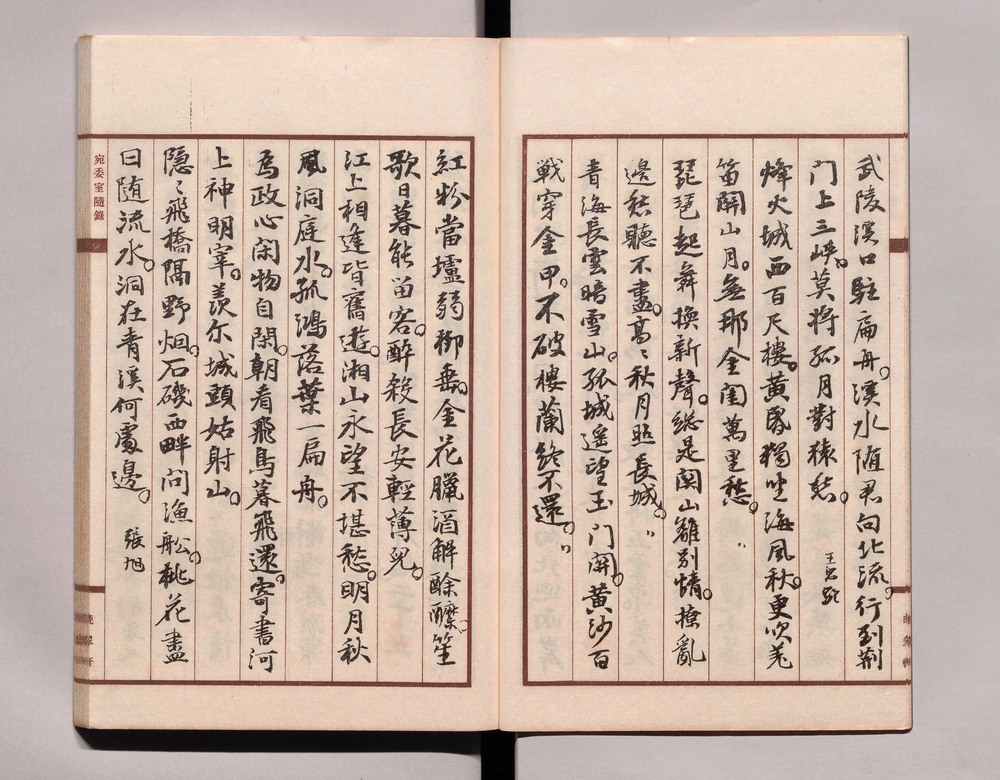 武陵溪口駐扁舟。溪水随君向北流。行到荆
门上三峽。莫将孤月對猿愁。王昌齡
烽火城西百尺樓。黄昏獨坐海風秋。更吹羌
笛關山月。無那金閨萬里愁。〃
琵琶起舞換新聲。総是関山離别情。撩亂
邊愁聽不盡。高〻秋月照長城。〃
青海長雲暗雪山。孤城遥望玉门関。黄沙百
戰穿金甲。不破樓蘭終不還。〃
紅粉當壚弱柳垂。金花臘酒解酴醾。笙
歌日暮能留客。醉殺長安輕薄兒。
江上相逢皆舊遊。湘山永望不堪愁。明月秋
風洞庭水。孤鴻落葉一扁舟。
為政心閑物自閑。朝看飛鳥暮飛還。寄書河
上神明宰。羡尔城頭姑射山。
隱〻飛橋隔野烟。石磯西畔问漁舩。桃花盡
日随流水。洞在青溪何處邊。張旭
宛委室隨錄